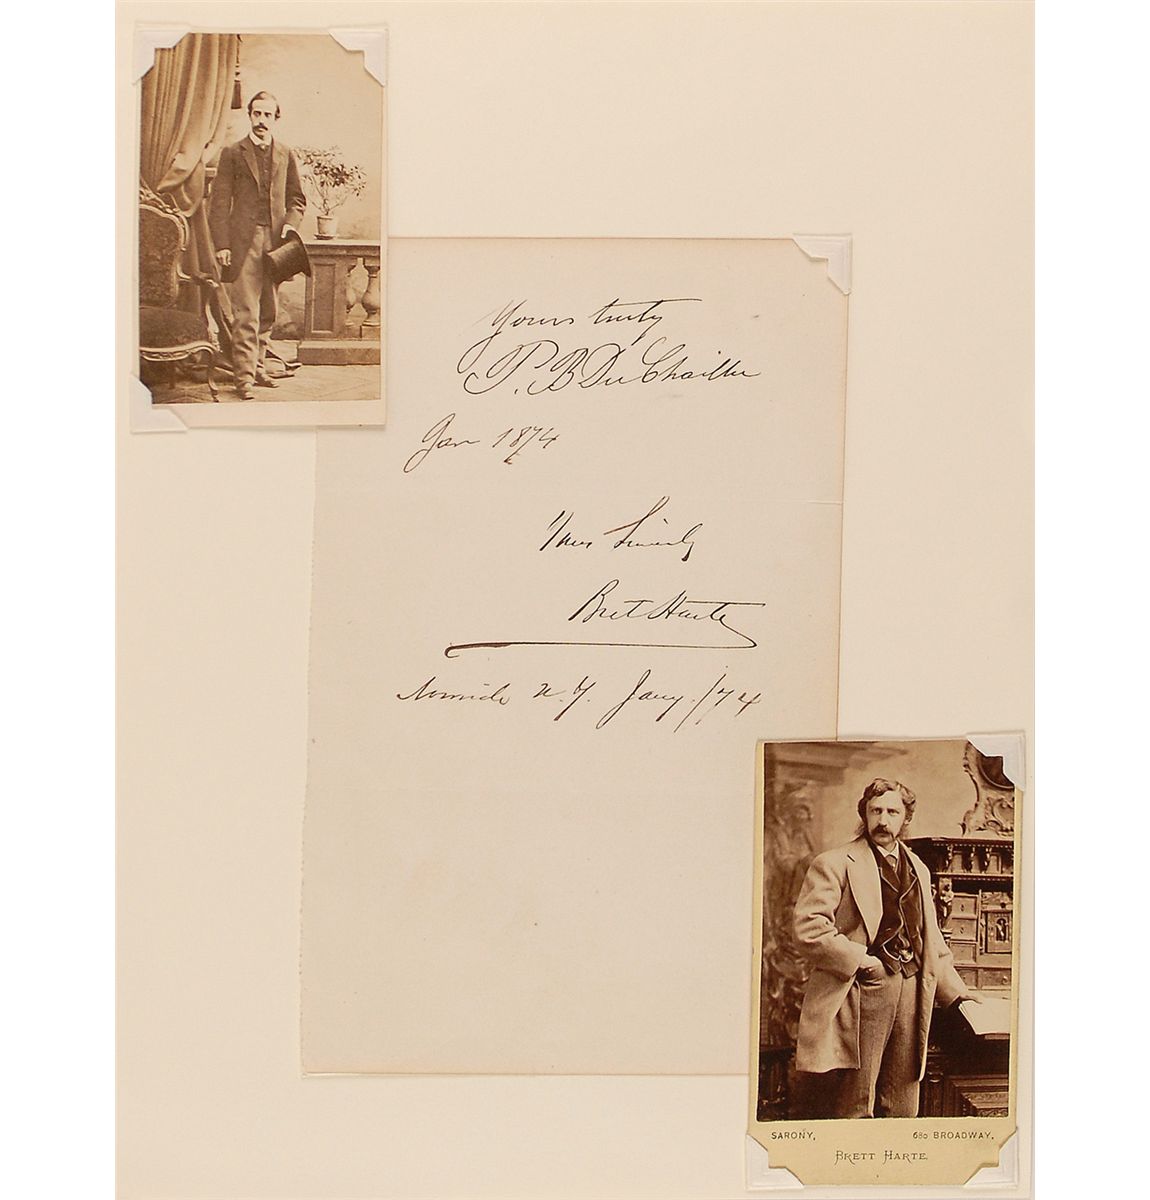 Yours truly
P. B Du Chaillu
Jan 1874
Yours Sincerely
Bret Harte
N.Y. Jany. /74
SARONY, 680 BROADWAY,
BRETT HARTE.